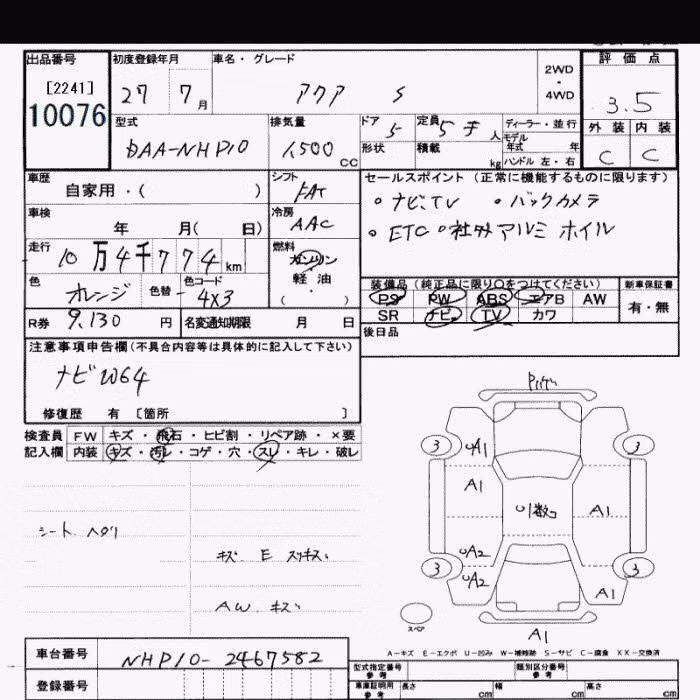 出品番号 初度登録年月 車名・グレード 評価点
[2241]
10076
27 7月 アクア S
2WD
・
4WD
3.5
型式 排気量 ドア 定員 ディーラー・並行
DAA-NHP10 1,500 CC 5 5 人
モデル年式 年
形状 積載 kg ハンドル 左・右
外装 内装
C C
車歴 シフト セールスポイント (正常に機能するものに限ります)
自家用・( ) FAT
・ナビ.TV ・バックカメラ
車検 冷房
年 月( 日) AAC
・ETC ・社外アルミホイル
走行 燃料
10万4千774km
ガソリン
軽油
・
( )
色 色替 色コード
オレンジ - 4X3
装備品(純正品に限り○をつけてください) 新車保証書
PS PW ABS エアB AW
有・無
SR ナビ TV カワ
R券 9,130円 名変通知期限 月 日
後日品
注意事項申告欄(不具合内容等は具体的に記入して下さい)
ナビW64
修復歴 有 〔箇所 〕
検査員 FW キズ・飛石・ヒビ割・リペア跡・×要
記入欄 内装 キズ・汚レ・コゲ・穴・スレ・キレ・破レ
シート ヘタリ
キズ E スリキズ
AW キズ
3 UA1 3
A1
U1数コ A1
UA2
3 UA2 3
A1
スペア
A1
A-キズ E-エクボ U-凹み W-補修跡 S-サビ C-腐食 XX-交換済
車台番号 NHP10-2467582
型式指定番号 類別区分番号
参考 参考
登録番号
車庫証明用 長さ 幅 高さ
参考 cm cm cm